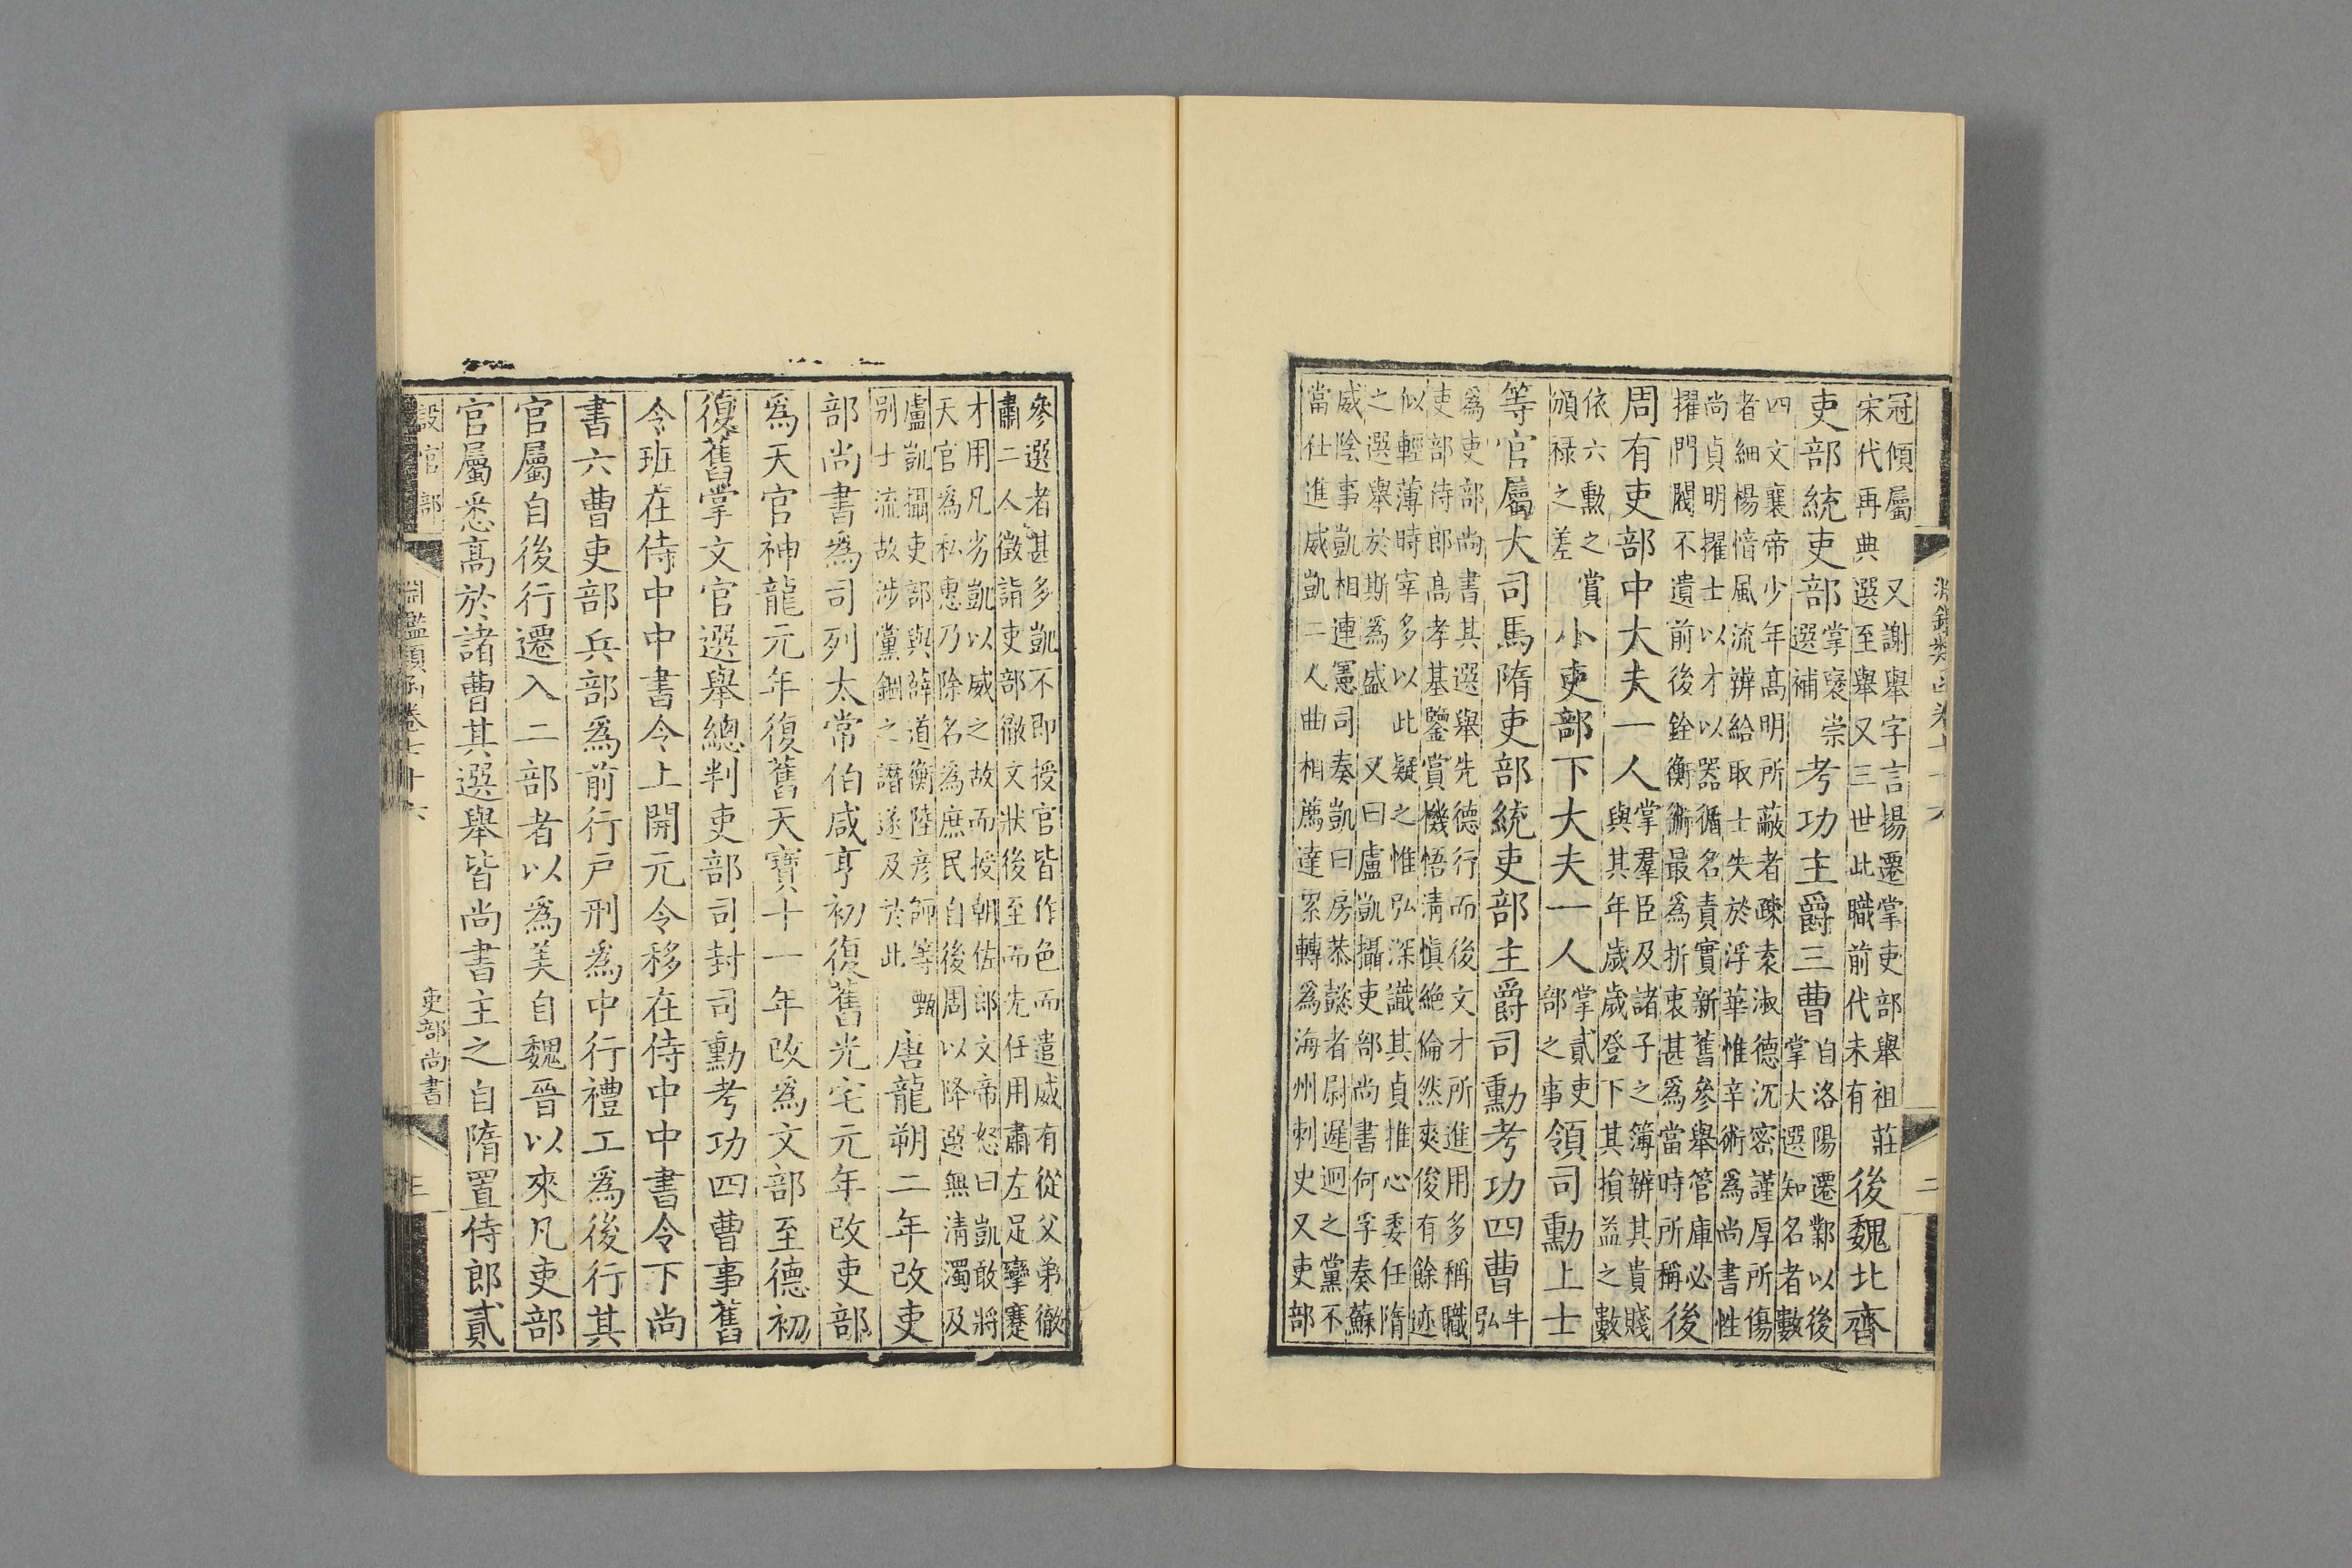 冠傾屬又謝舉字言揚遷掌吏部舉祖莊
宋代再典選至舉又三世此職前代未有
後魏北齊
吏部統吏部
掌襃崇
選補
考功主爵三曹
自洛陽遷鄴以後
掌大選知名者數
四文襄帝少年高明所蔽者疎袁淑德沉密謹厚所傷
者細楊愔風流辨給取士失於浮華惟辛術為尚書性
尚貞明擢士以才以器循名責實新舊參舉管庫必
擢門閥不遺前後銓衡術最為折衷甚為當時所稱
後
周有吏部中大夫一人
掌羣臣及諸子之簿辨其貴賤
與其年歲歲登下其損益之數
依六勳之賞
頒祿之差
小吏部下大夫一人
掌貳吏
部之事
領司勳上士
等官屬大司馬隋吏部統吏部主爵司勳考功四曹
牛
弘
為吏部尚書其選舉先德行而後文才所進用多稱職
吏部侍郎高孝基鑒賞機悟清慎絶倫然爽俊有餘迹
似輕薄時宰多以此疑之惟弘深識其貞推心委任隋
之選舉於斯為盛 又曰盧凱攝吏部尚書何孚奏蘇
威陰事凱相連憲司奏凱曰房恭懿者尉遲迥之黨不
當仕進威凱二人曲相薦達累轉為海州刺史又吏部
參選者甚多凱不即授官皆作色而遣威有從父弟徹
肅二人徵詣吏部徹文狀後至而先任用肅左足攣蹇
才用凡劣凱以威之故而授朝佐郎文帝怒曰凱敢將
天官為私惠乃除名為庶民自後周以降選無清濁及
盧凱攝吏部與薛道衡陸彥師等甄
别士流故涉黨錮之譖遂及於此
唐龍朔二年改吏
部尚書為司列太常伯咸亨初復舊光宅元年改吏部
為天官神龍元年復舊天寶十一年改為文部至德初
復舊掌文官選舉總判吏部司封司勳考功四曹事舊
令班在侍中中書令上開元令移在侍中中書令下尚
書六曹吏部兵部為前行戶刑為中行禮工為後行其
官屬自後行遷入二部者以為美自魏晉以來凡吏部
官屬悉高於諸曹其選舉皆尚書主之自隋置侍郎貳
設官部
淵鑑類函卷七十六
吏部尚書
三